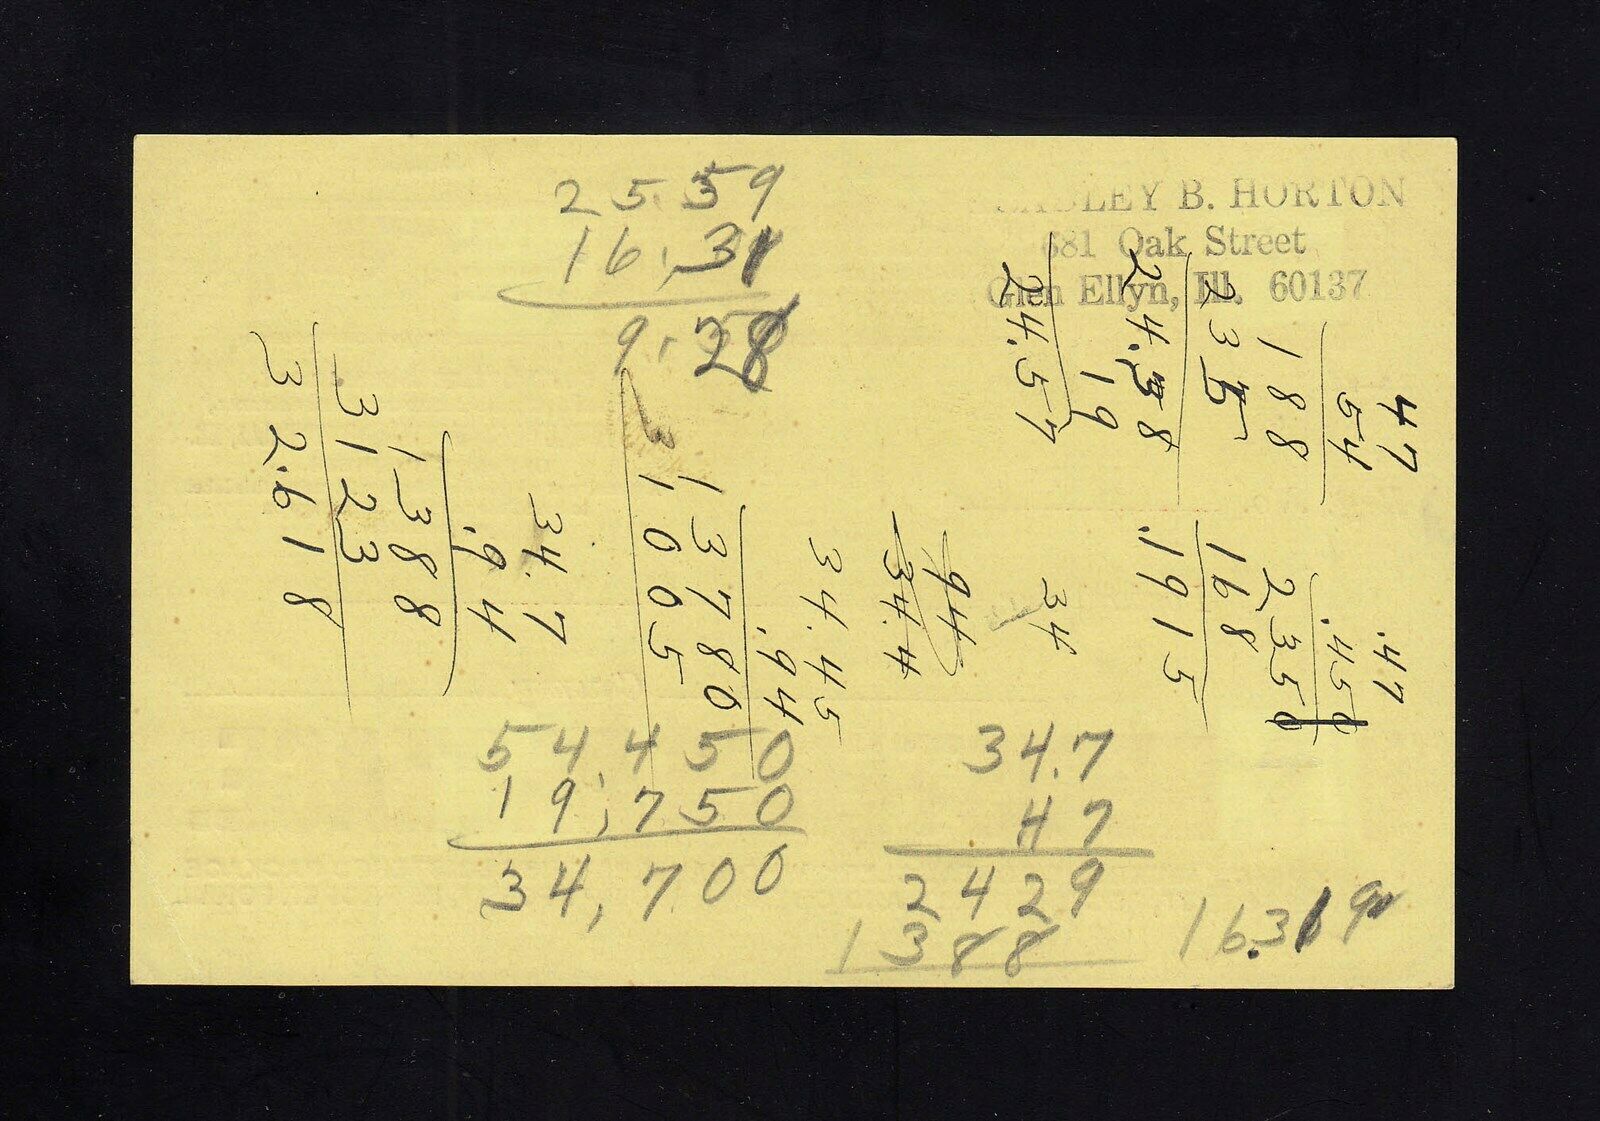 B. HORTON
681 Oak Street
Glen Ellyn, Ill. 60137
25.59
16.31
9.28
47
54
188
235
24.38
19
24.57
.47
.45
235
168
.1915
34
94
34.4
34.45
.94
13780
1005
34.7
.94
1388
3123
32.618
54450
19,750
34,700
34.7
.47
2429
1388
16.319